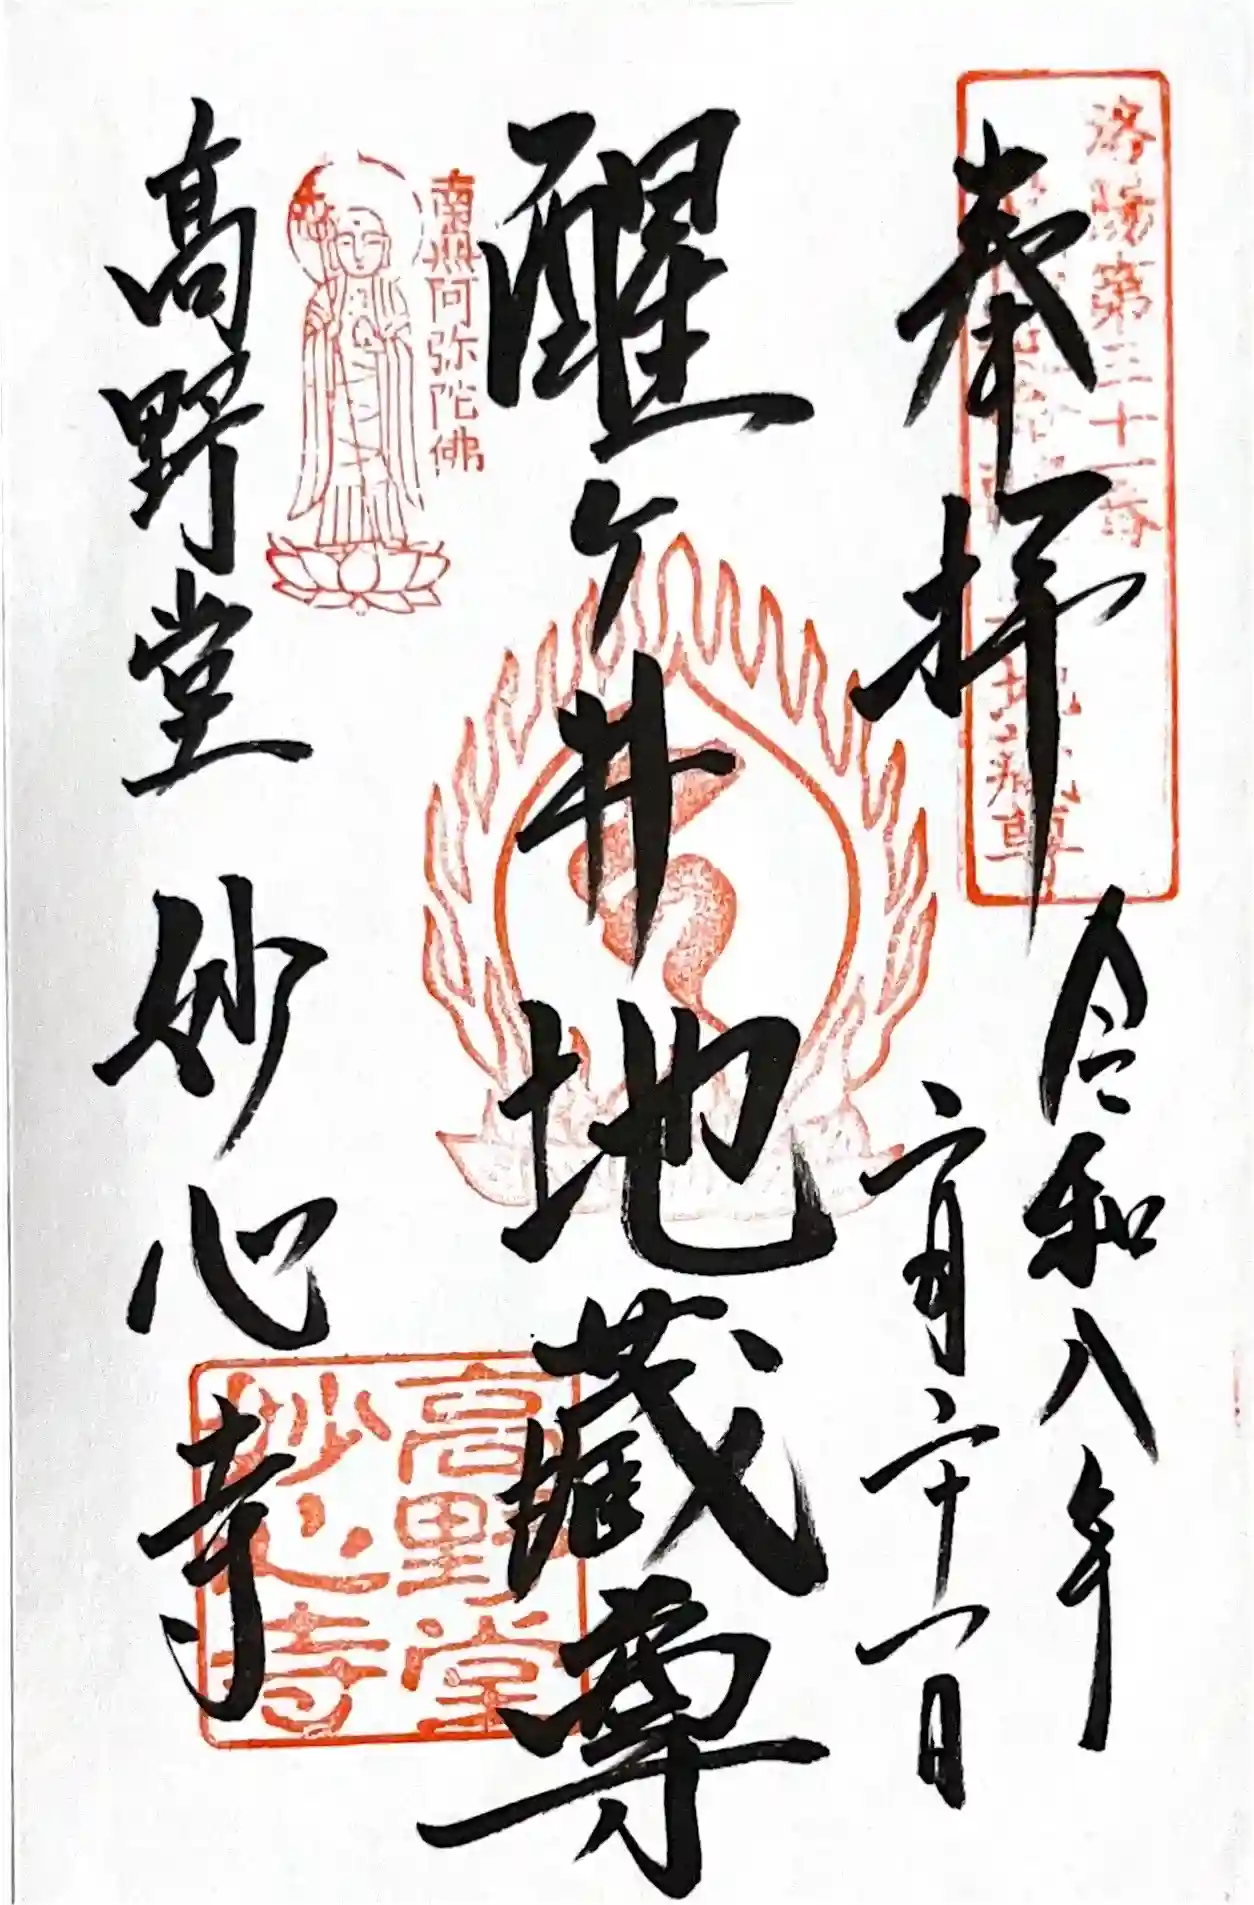 洛陽第三十一番
地蔵尊
奉拝
令和八年
二月二十一日
醒ヶ井地蔵尊
南無阿弥陀佛
高野堂 妙心寺
高野堂
妙心寺